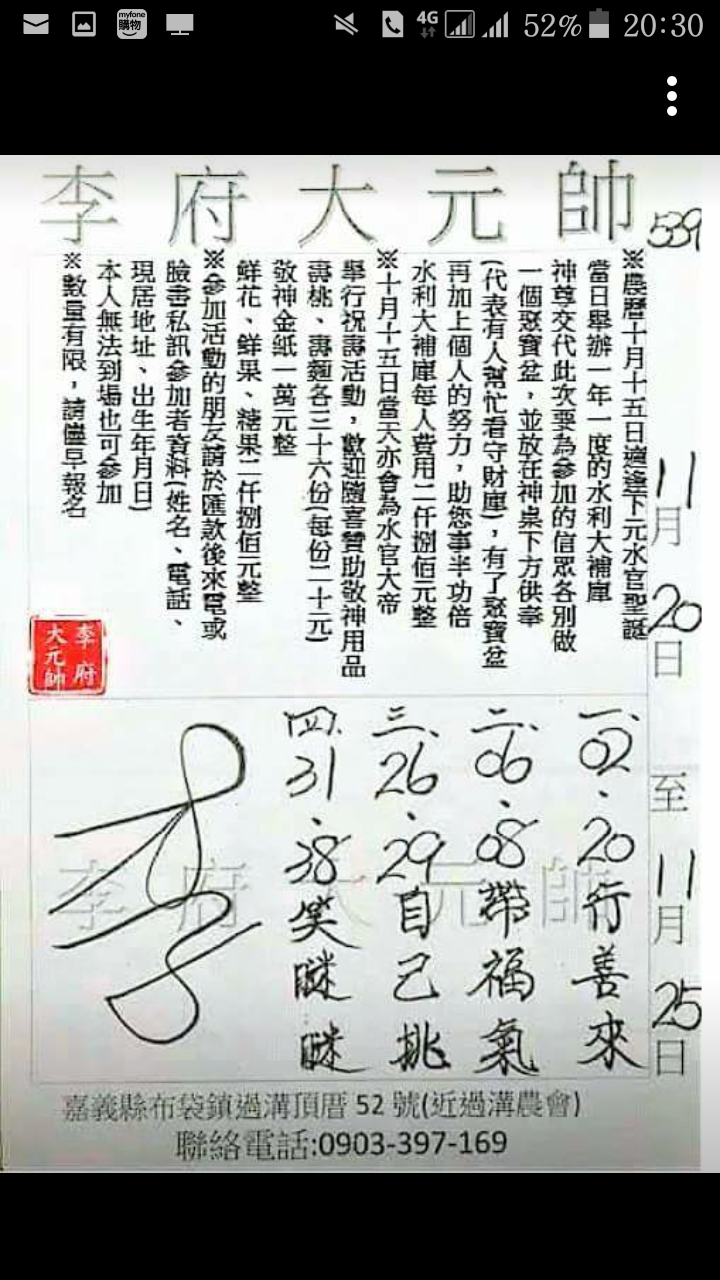 myfone
購物
4G
52%
20:30
李府大元帥
539
※農曆十月十五日適逢下元水官聖誕
當日舉辦一年一度的水利大補庫
神尊交代此次要為參加的信眾各別做
一個聚寶盆，並放在神桌下方供奉
(代表有人幫忙看守財庫)，有了聚寶盆
再加上個人的努力，助您事半功倍
水利大補庫每人費用二仟捌佰元整
※十月十五日當天亦會為水官大帝
舉行祝壽活動，歡迎隨喜贊助敬神用品
壽桃、壽麵各三十六份(每份二十元)
敬神金紙一萬元整
鮮花、鮮果、糖果二仟捌佰元整
※參加活動的朋友請於匯款後來電或
臉書私訊參加者資料(姓名、電話、
現居地址、出生年月日)
本人無法到場也可參加
※數量有限，請儘早報名
李府
大元帥
11月20日至11月25日
一.02.20行善來
二.06.08帶福氣
三.26.29自己挑
四.31.38笑瞇瞇
李府大元帥
嘉義縣布袋鎮過溝頂厝 52 號(近過溝農會)
聯絡電話:0903-397-169